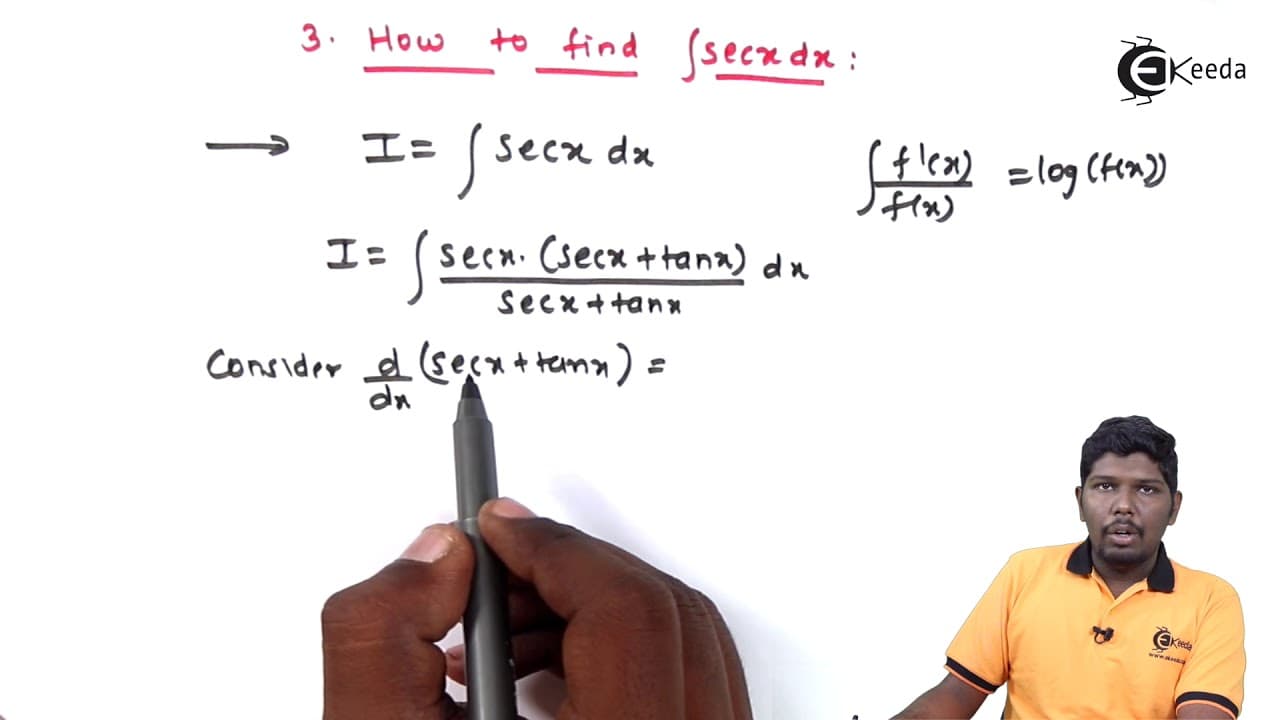 3. How to find ∫secx dx :
EKeeda
⟶ I = ∫ secx dx
∫ f'(x)/f(x) = log(f(x))
I = ∫ secx. (secx + tanx)/secx + tanx dx
Consider d/dx (secx + tanx) =
EKeeda